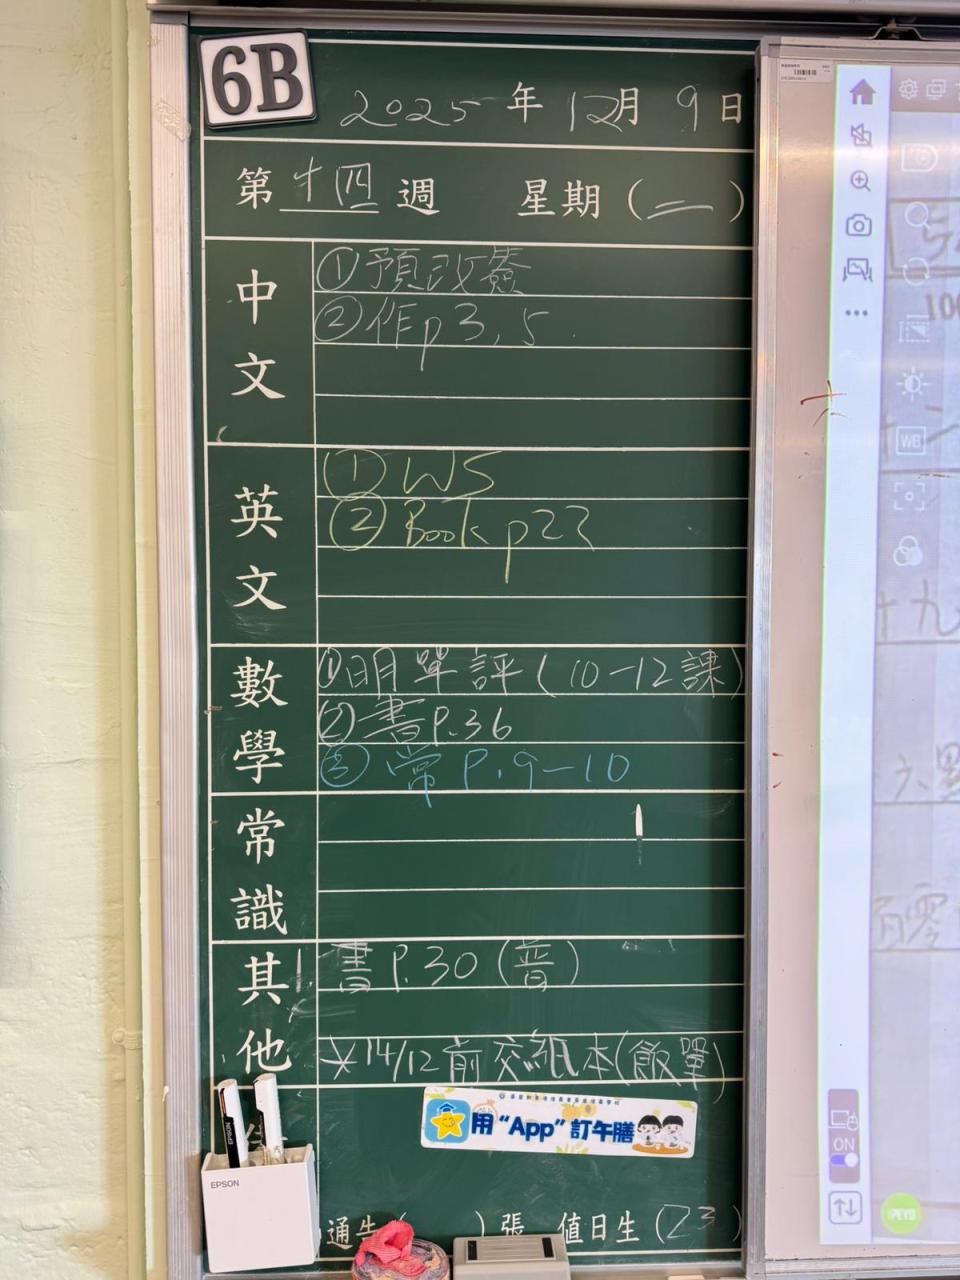 6B
2025年12月9日
第十四週 星期(二)
中文
①預改簽
②作p3,5
英文
①WS
②Book p22
數學
①明單評(10-12課)
②書P.36
③常P.9-10
常識
其他
書P.30(普)
*14/12前交紙本(飯單)
用“App”訂午膳
EPSON
EPSON
通告( )張 值日生(23)
WB
ON